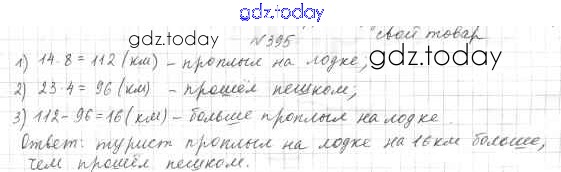 gdz.today
№395 "свой товар
gdz.today gdz.today
1) 14·8=112(км) – проплыл на лодке;
2) 23·4=96(км) – прошёл пешком;
3) 112-96=16(км) – больше проплыл на лодке.
Ответ: турист проплыл на лодке на 16км больше,
чем прошёл пешком.